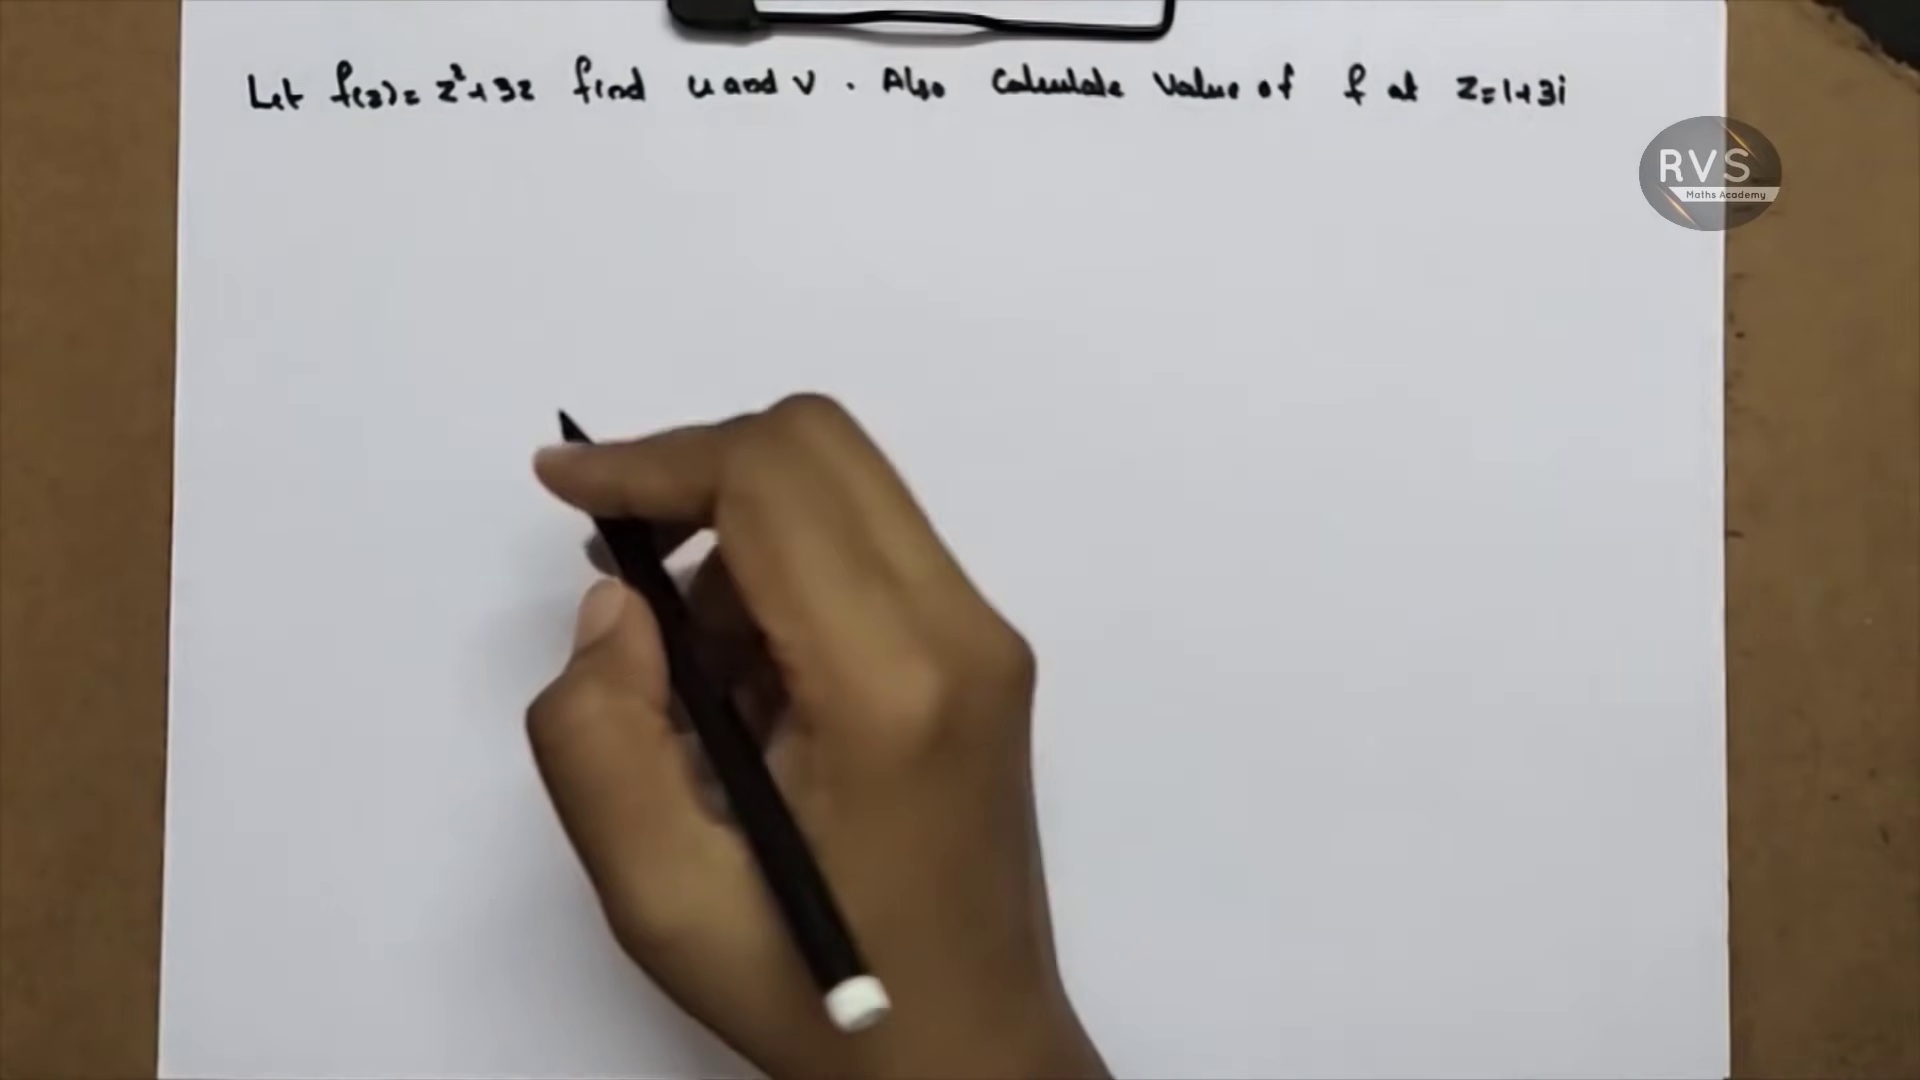 Let f(z) = z²+3z find u and v. Also Calculate Value of f at z=1+3i
RVS
Maths Academy